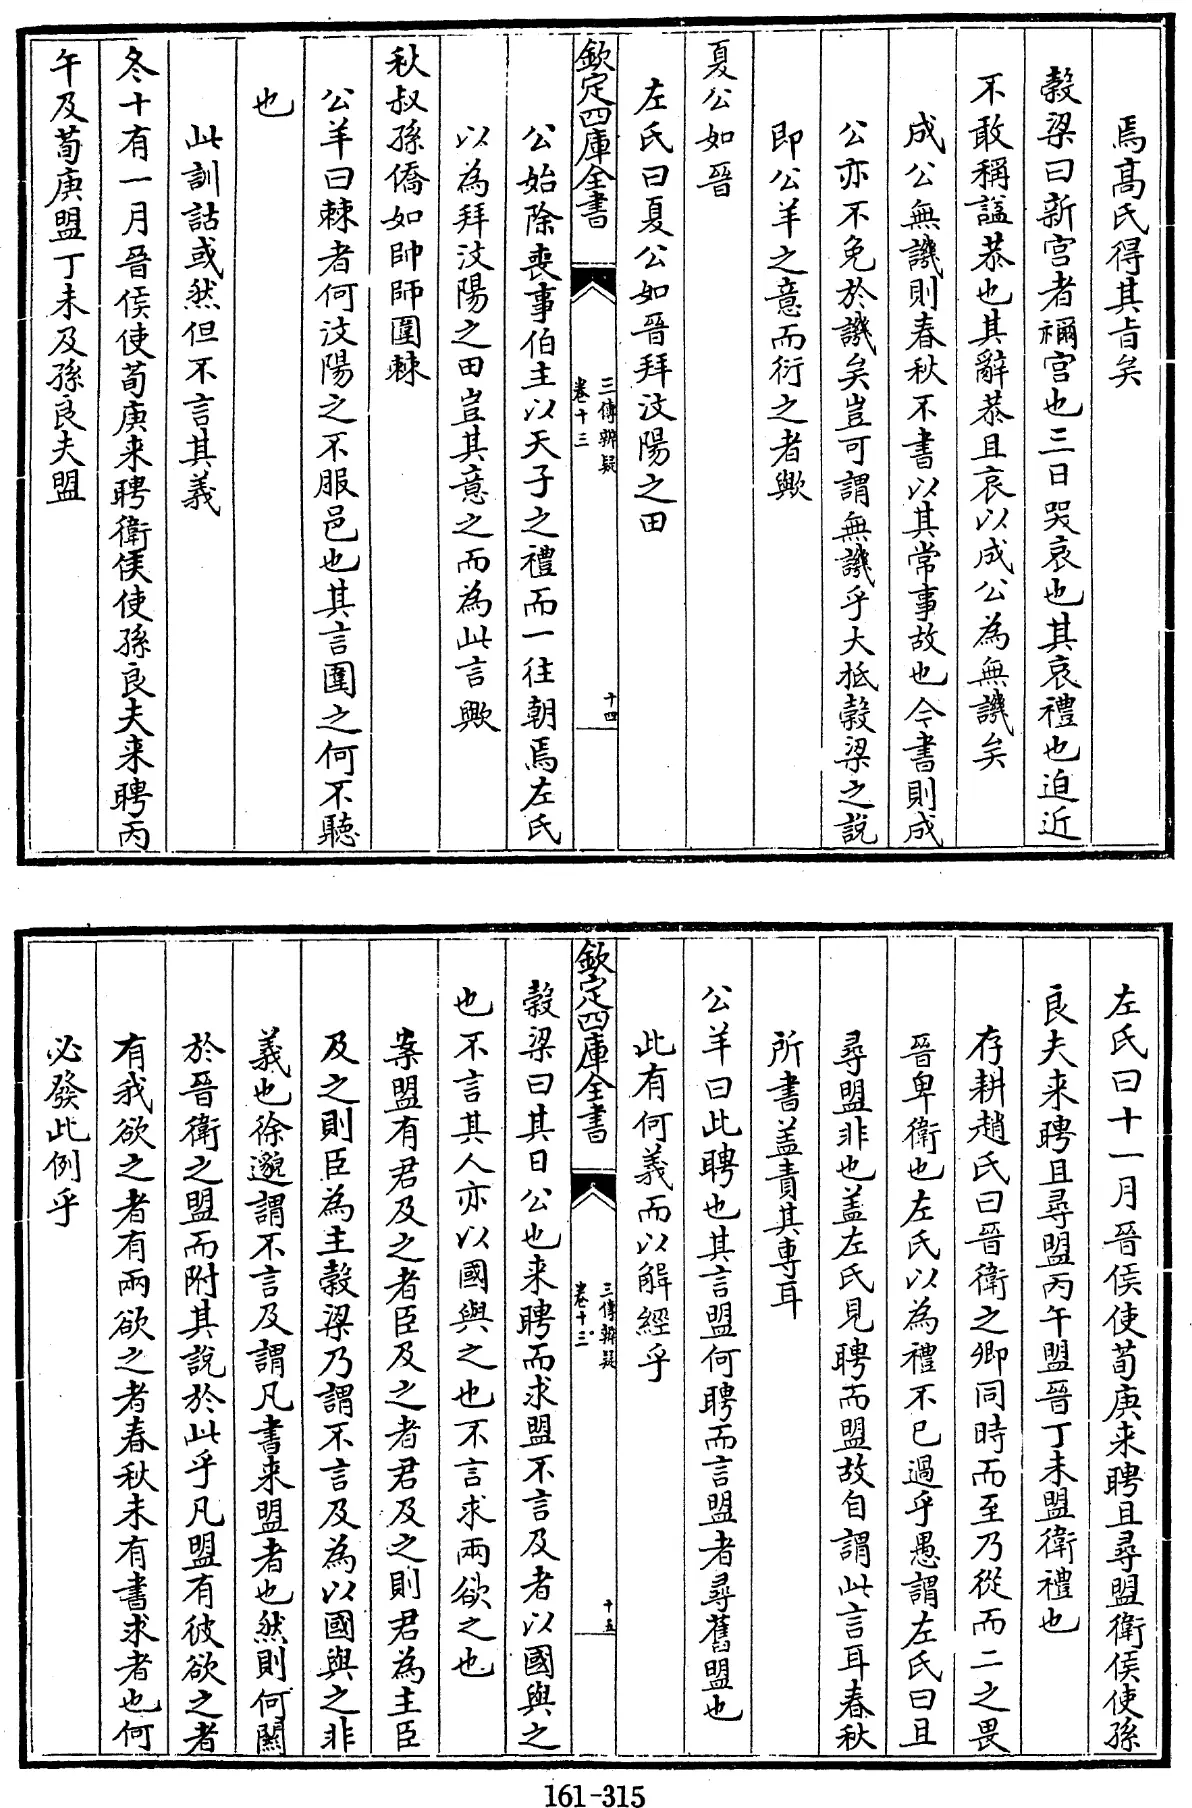 焉髙氏得其㫖矣
榖梁曰新宫者禰宫也三日哭哀也其哀禮也迫近
不敢稱諡恭也其辭恭且哀以成公為無譏矣
成公無譏則春秋不書以其常事故也今書則成
公亦不免於譏矣豈可謂無譏乎大抵榖梁之説
即公羊之意而衍之者歟
夏公如晉
左氏曰夏公如晉拜汶陽之田
欽定四庫全書
三傳辨疑
卷十三
十四
公始除喪事伯主以天子之禮而一往朝焉左氏
以為拜汶陽之田豈其意之而為此言歟
秋叔孫僑如帥師圍棘
公羊曰棘者何汶陽之不服邑也其言圍之何不聽
也
此訓詁或然但不言其義
冬十有一月晉侯使荀庚来聘衛侯使孫良夫来聘丙
午及荀庚盟丁未及孫良夫盟
左氏曰十一月晉侯使荀庚来聘且尋盟衛侯使孫
良夫来聘且尋盟丙午盟晉丁未盟衛禮也
存耕趙氏曰晉衛之卿同時而至乃從而二之畏
晉卑衛也左氏以為禮不已過乎愚謂左氏曰且
尋盟非也盖左氏見聘而盟故自謂此言耳春秋
所書盖責其專耳
公羊曰此聘也其言盟何聘而言盟者尋舊盟也
此有何義而以解經乎
欽定四庫全書
三傳辨疑
卷十三
十五
榖梁曰其日公也来聘而求盟不言及者以國與之
也不言其人亦以國與之也不言求兩欲之也
案盟有君及之者臣及之者君及之則君為主臣
及之則臣為主榖梁乃謂不言及為以國與之非
義也徐邈謂不言及謂凡書来盟者也然則何闗
於晉衛之盟而附其説於此乎凡盟有彼欲之者
有我欲之者有兩欲之者春秋未有書求者也何
必發此例乎
161-315